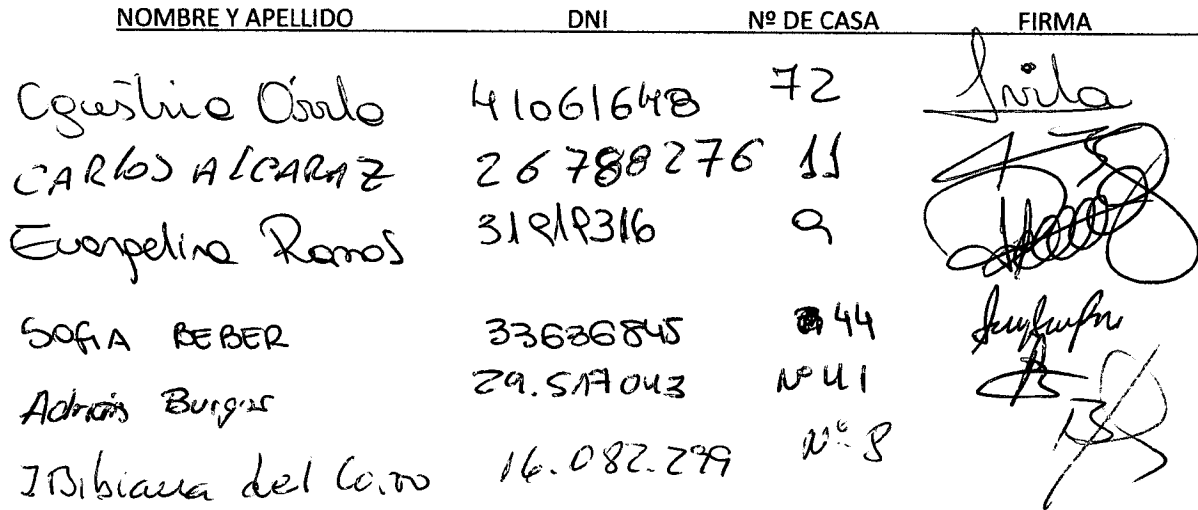 NOMBRE Y APELLIDO DNI Nº DE CASA FIRMA
41061648 72 Avila
CARLOS ALCARAZ 26788276 11
Evangelina Ramos 9
SOFIA BEBER 33636845 44
Adrián Burgos 29.517.043 Nº 41
Bibiana del 16.082.299 Nº